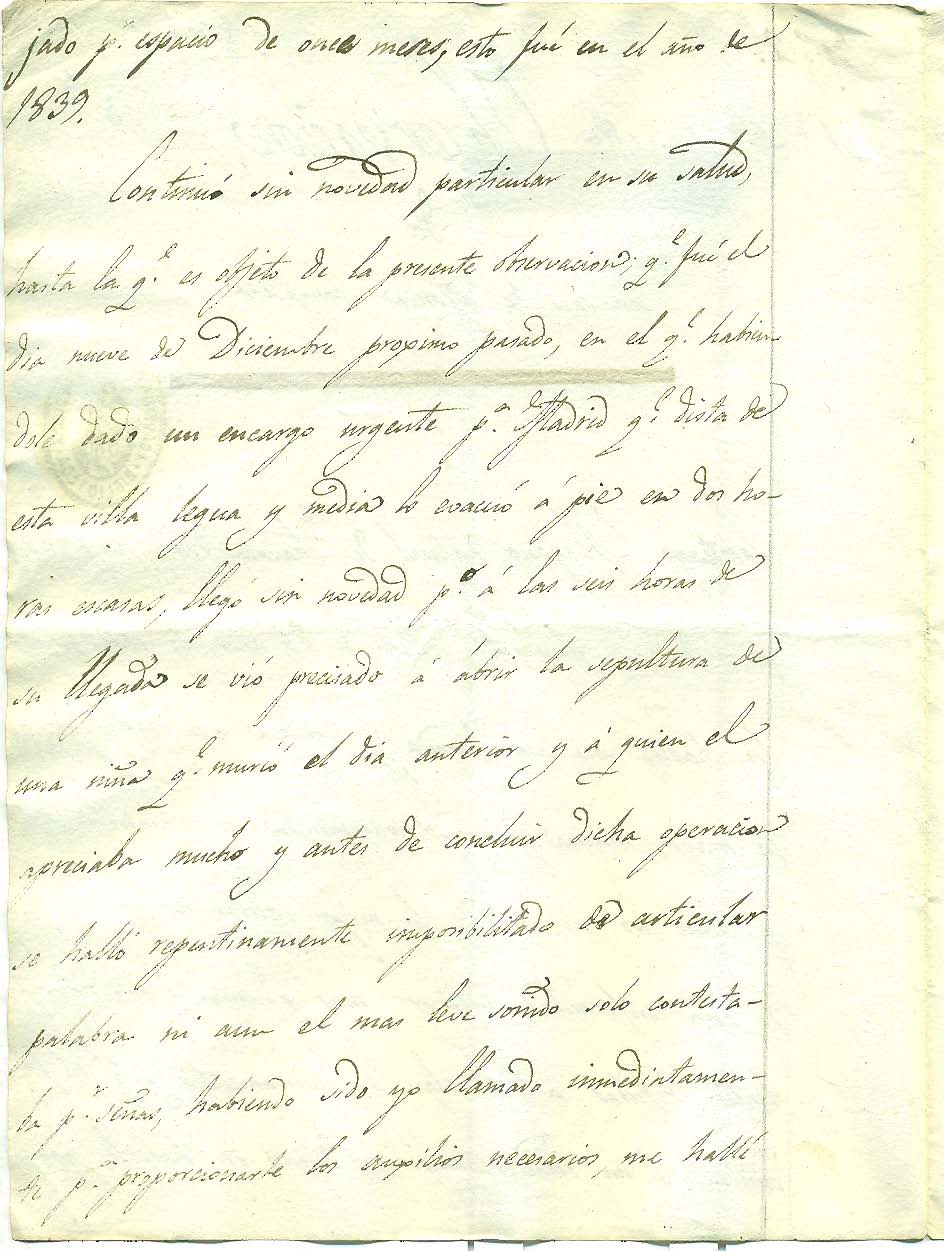 jado p.r espacio de once meses, esto fué en el año de
1839.
Continuó sin novedad particular en su salud,
hasta la q.e es objeto de la presente observacion; q.e fué el
dia nueve de Diciembre proximo pasado, en el q.e habien
dole dado un encargo urgente p.a Madrid q.e dista de
esta villa legua y media lo evacuó á pie en dos ho-
ras escasas, llegó sin novedad p.o á las seis horas de
su llegada se vió precisado á ábrir la sepultura de
una niña q.e murió el dia anterior y á quien el
apreciaba mucho y antes de concluir dicha operacion
se halló repentinamente imposibilitado de articular
palabra ni aun el mas leve sonido solo contesta-
ba p.r señas, habiendo sido yo llamado inmediatamen-
te p.a proporcionarle los ausilios necesarios, me hallé